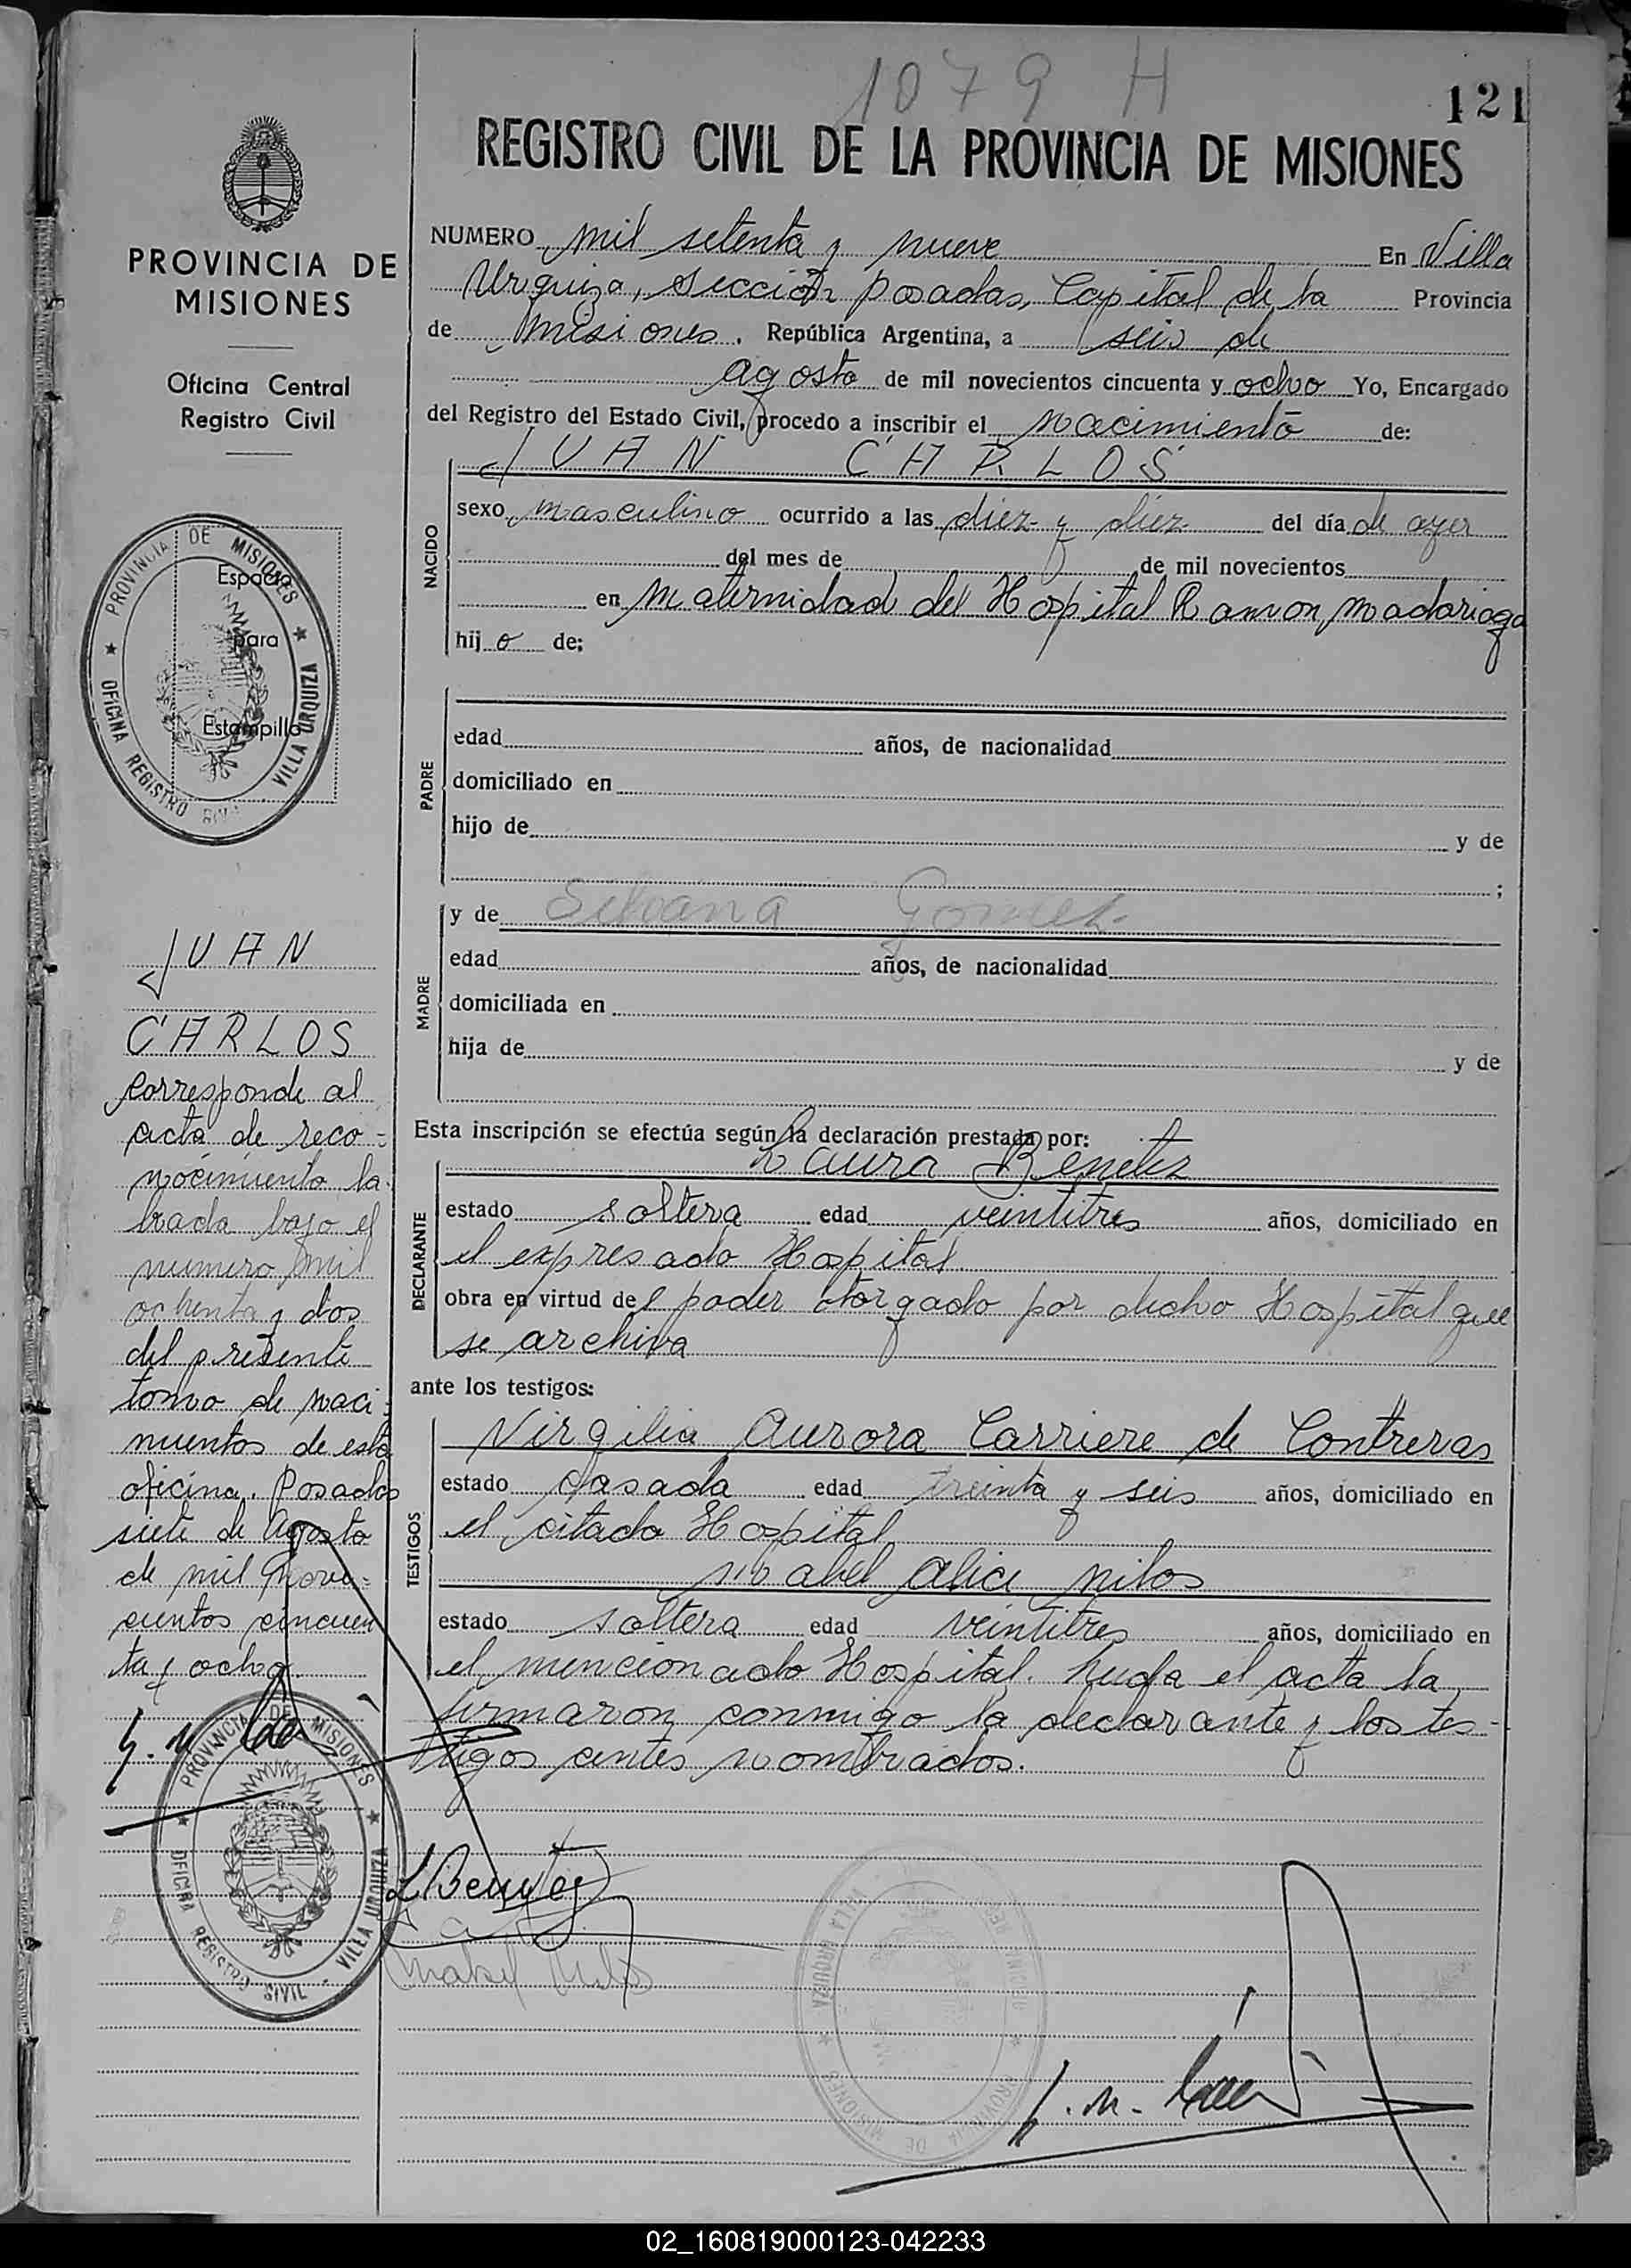 1079 H
121
REGISTRO CIVIL DE LA PROVINCIA DE MISIONES
PROVINCIA DE
MISIONES
Oficina Central
Registro Civil
PROVINCIA DE MISIONES
OFICINA REGISTRO CIVIL VILLA URQUIZA
Espacio
para
Estampilla
JUAN
CARLOS
corresponde al
acta de reco-
nocimiento la-
brada bajo el
numero mil
ochenta y dos
del presente
tomo de naci-
mientos de esta
oficina. Posadas
siete de Agosto
de mil nove-
cientos cincuen
ta y ocho.
PROVINCIA DE MISIONES
OFICINA REGISTRO CIVIL VILLA URQUIZA
NUMERO mil setenta y nueve En Villa
Urquiza, sección Posadas, Capital de la Provincia
de Misiones. República Argentina, a seis de
agosto de mil novecientos cincuenta y ocho Yo, Encargado
del Registro del Estado Civil, procedo a inscribir el nacimiento de:
NACIDO
JUAN CARLOS
sexo masculino ocurrido a las diez y diez del día de ayer
del mes de de mil novecientos
en maternidad del Hospital Ramon Madariaga
hijo de:
PADRE
edad años, de nacionalidad
domiciliado en
hijo de y de
;
MADRE
y de Silvana Gomez
edad años, de nacionalidad
domiciliada en
hija de y de
Esta inscripción se efectúa según la declaración prestada por:
DECLARANTE
Laura Benitez
estado soltera edad veintitres años, domiciliado en
el expresado Hospital
obra en virtud del poder otorgado por dicho Hospital que
se archiva
ante los testigos:
TESTIGOS
Virgilia Aurora Carriere de Contreras
estado casada edad treinta y seis años, domiciliado en
el citado Hospital
alice milos
estado soltera edad veintitres años, domiciliado en
el mencionado Hospital. Leida el acta la
firmaron conmigo la declarante y los tes-
tigos antes nombrados.
L Benitez
Mabel Milos
VILLA URQUIZA
PROVINCIA DE MISIONES
02_160819000123-042233